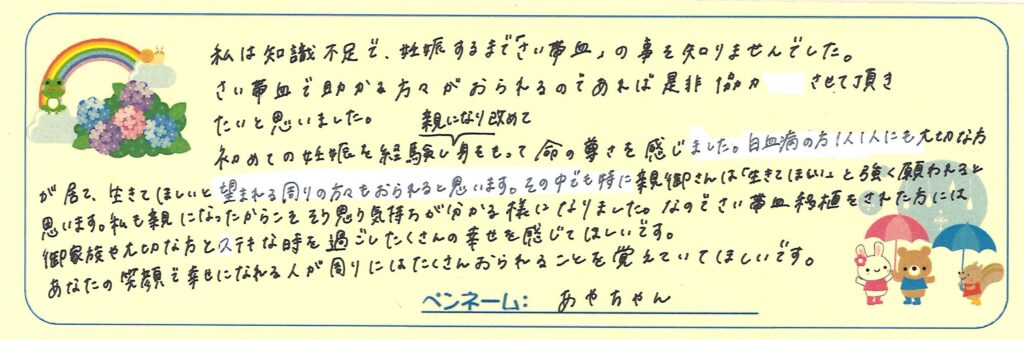 私は知識不足で、妊娠するまで「さい帯血」の事を知りませんでした。
さい帯血で助かる方々がおられるのであれば是非協力させて頂き
たいと思いました。
親になり改めて
初めての妊娠を経験し身をもって命の尊さを感じました。白血病の方1人1人にも大切な方
が居て、生きてほしいと望まれる周りの方々もおられると思います。その中でも特に親御さんは「生きてほしい」と強く願われると
思います。私も親になったからこそそう思う気持ちが分かる様になりました。なのでさい帯血移植をされた方には
御家族や大切な方とステキな時を過ごしたくさんの幸せを感じてほしいです。
あなたの笑顔で幸せになれる人が周りにはたくさんおられることを覚えていてほしいです。
ペンネーム: あやちゃん